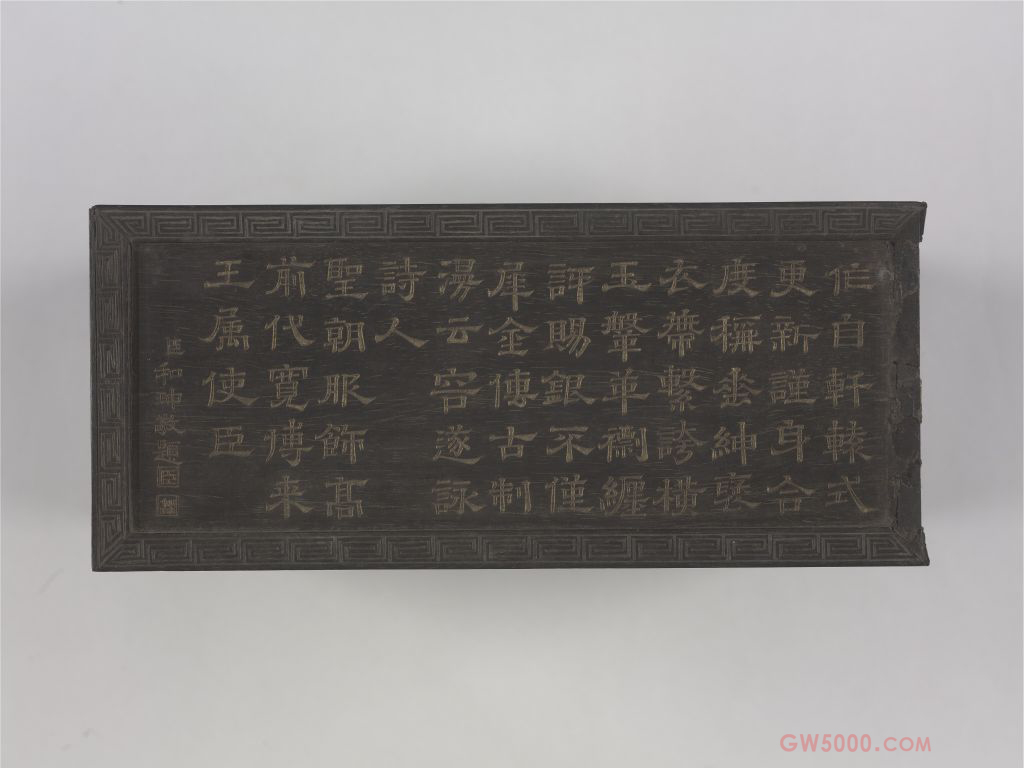 作自軒轅式
更新謹身合
度稱垂紳褒
衣帶繫誇橫
玉鞶革纏
賜銀不僅
犀金傳古制
云容遂詠
詩人
聖朝服飾高
前代寬博来
王属使臣
臣和珅敬題